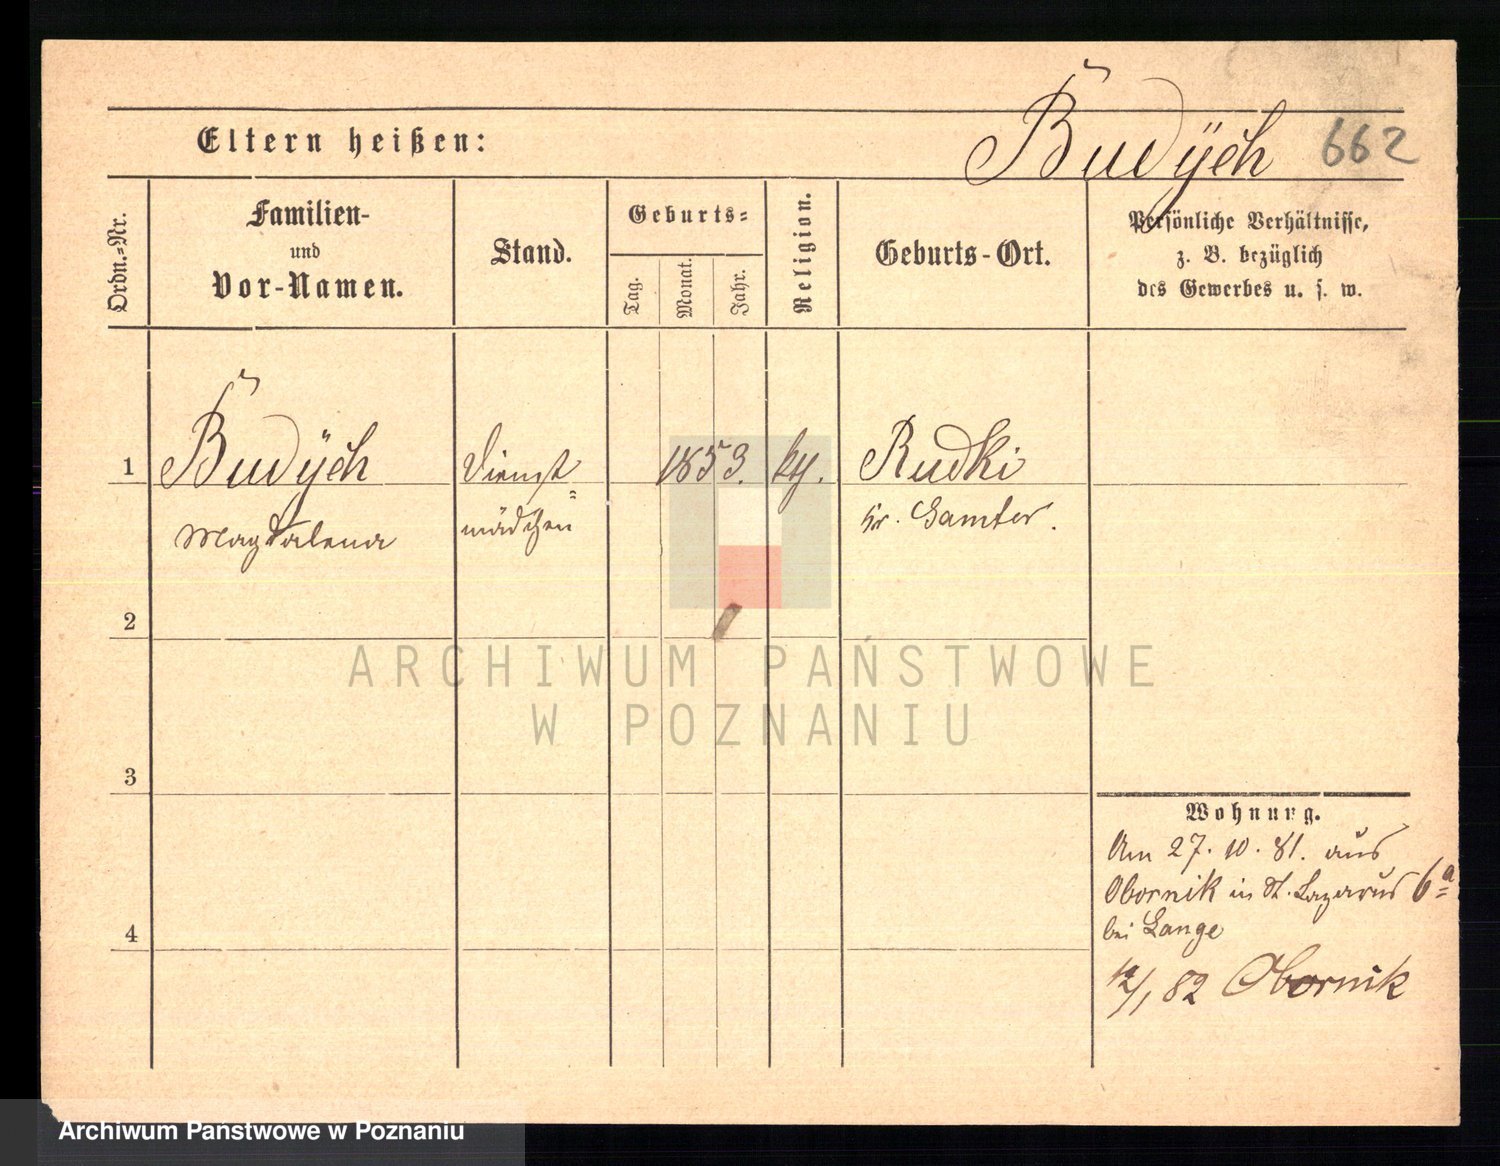 Budÿch 662
Eltern heißen:
Ordn.-Nr.
Familien-
und
Vor-Namen.
Stand.
Geburts-
Tag.
Monat.
Jahr.
Religion.
Geburts-Ort.
Persönliche Verhältnisse,
z. B. bezüglich
des Gewerbes u. s. w.
1 Budÿch Dienst= 1853. Rudki
Magdalena mädchen Kr. Samter.
2
3
4
Wohnung.
Am 27. 10. 81. aus
Obornik in St. Lazarus 6a
bei Lange
12/1 82 Obornik
ARCHIWUM PAŃSTWOWE
W POZNANIU
Archiwum Państwowe w Poznaniu